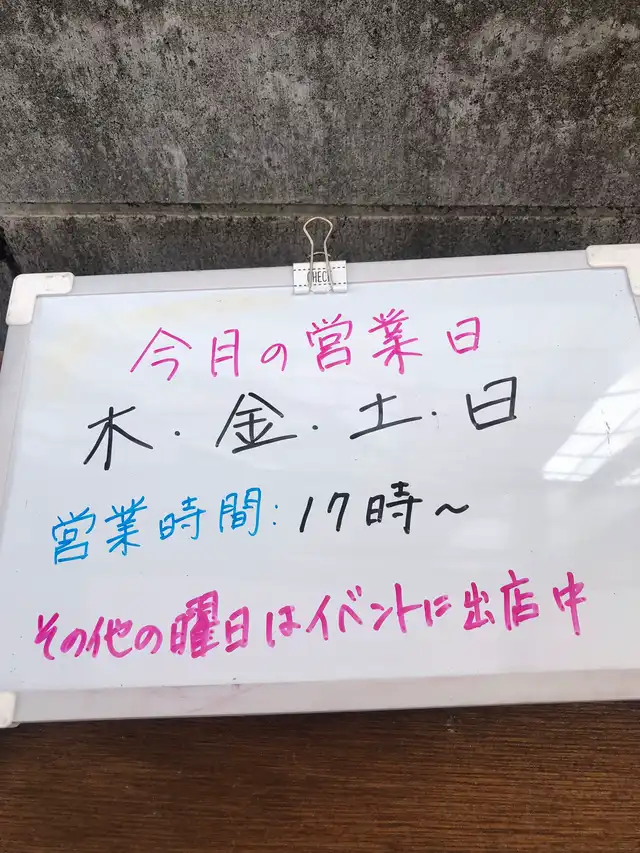 CHECK
今月の営業日
木・金・土・日
営業時間:17時~
その他の曜日はイベントに出店中